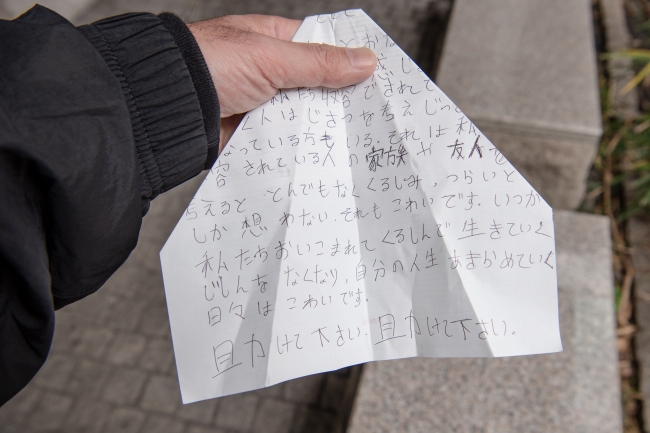 とかん
感し
私たち収容されて
くんはじさつを考えじっ
なっている方もいる.それは私
容されている人の家族や友人を
考えると とんでもなくくるしみ、つらいと
しか想わない.それもこわいです.いつか
私たちおいこまれてくるしんで生きていく
じしんをなくなり、自分の人生あきらめていく
日々はこわいです.
助けて下さい.助けて下さい.